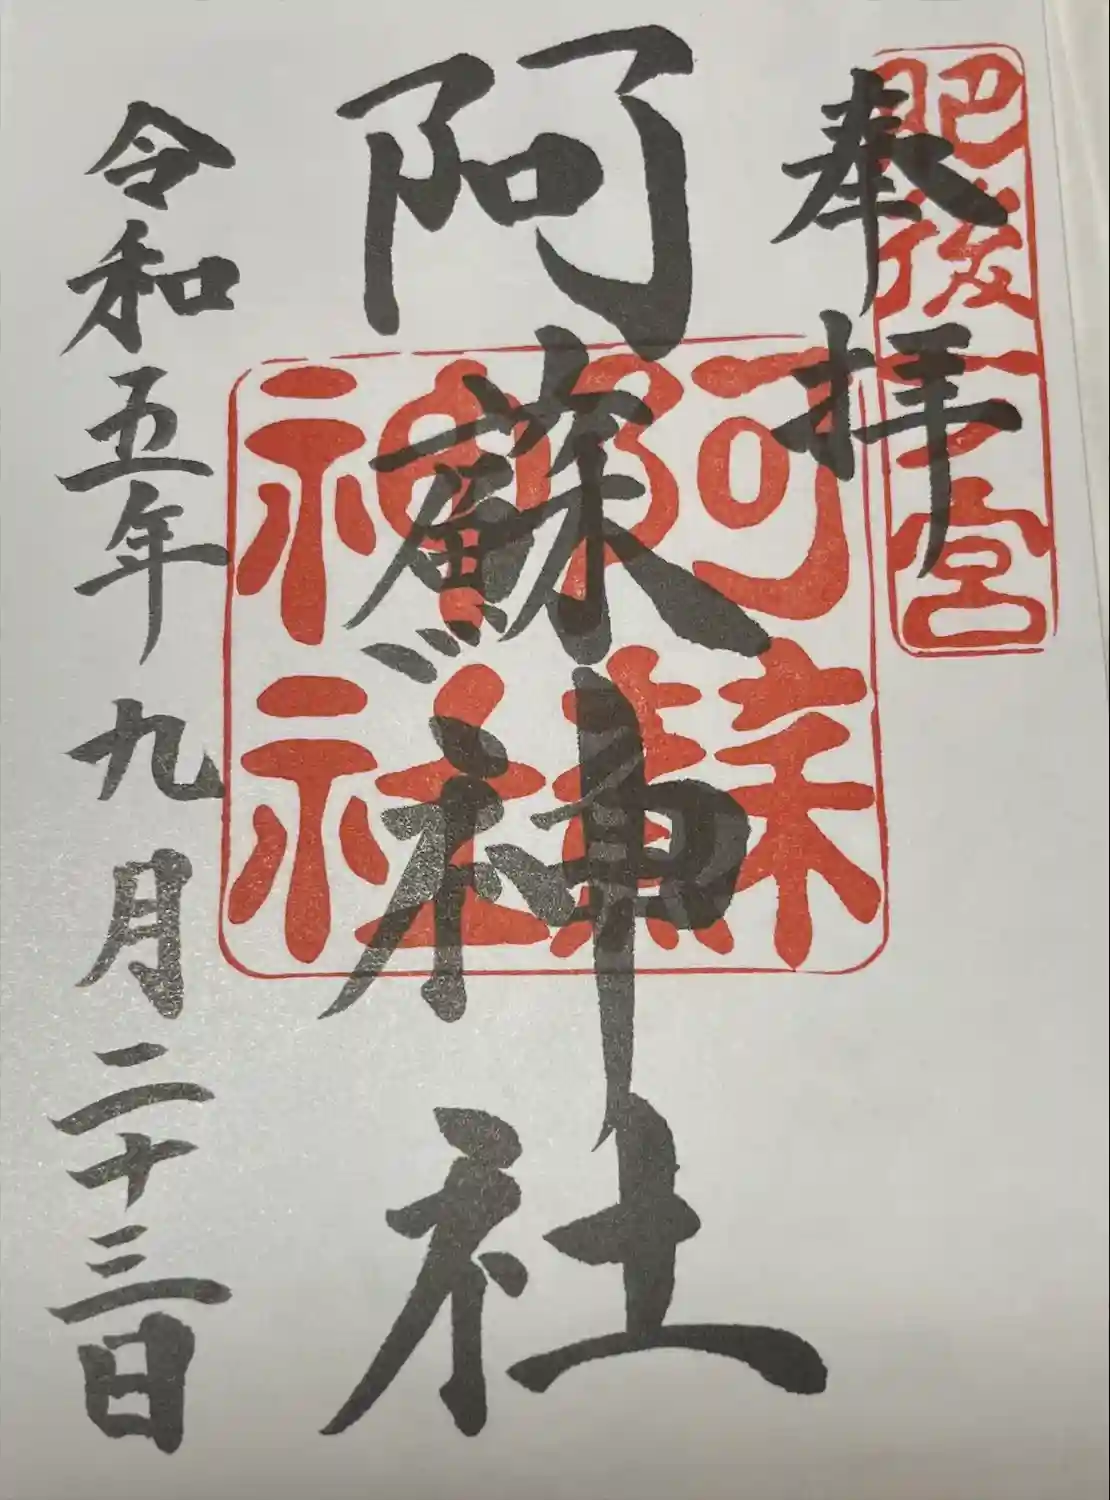 肥後一之宮
奉拝
阿蘇神社
阿蘇神社
令和五年九月二十三日